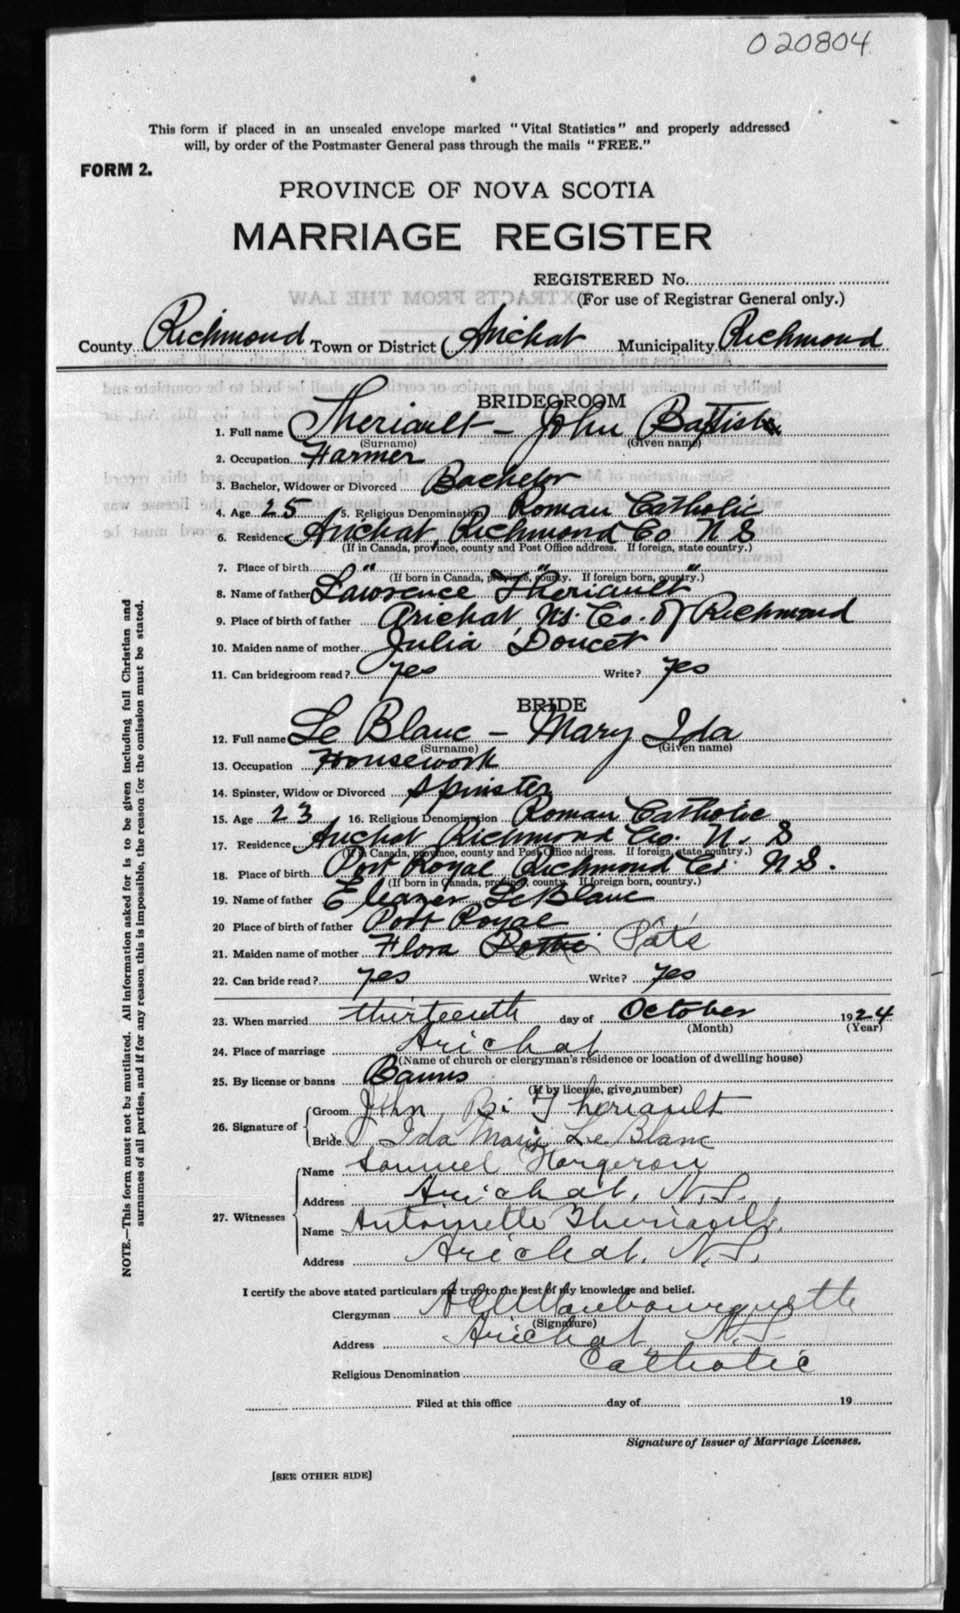 020804
This form if placed in an unsealed envelope marked "Vital Statistics" and properly addressed
will, by order of the Postmaster General pass through the mails "FREE."
FORM 2.
PROVINCE OF NOVA SCOTIA
MARRIAGE REGISTER
REGISTERED No.
(For use of Registrar General only.)
County Richmond Town or District Arichat Municipality Richmond
BRIDEGROOM
1. Full name Theriault - John Baptiste
(Surname) (Given name)
2. Occupation Farmer
3. Bachelor, Widower or Divorced Bachelor
4. Age 25 5. Religious Denomination Roman Catholic
6. Residence Arichat, Richmond Co N S
(If in Canada, province, county and Post Office address. If foreign, state country.)
7. Place of birth " " "
(If born in Canada, province, county. If foreign born, country.)
8. Name of father Lawrence Theriault
9. Place of birth of father Arichat, NS. Co. Of Richmond
10. Maiden name of mother Julia Doucet
11. Can bridegroom read? yes Write? yes
BRIDE
12. Full name Le Blanc - Mary Ida
(Surname) (Given name)
13. Occupation Housework
14. Spinster, Widow or Divorced Spinster
15. Age 23 16. Religious Denomination Roman Catholic
17. Residence Arichat Richmond Co. N. S
(If in Canada, province, county and Post Office address. If foreign, state country.)
18. Place of birth Port Royal Richmond Co. N S.
(If born in Canada, province, county. If foreign born, country.)
19. Name of father Eleazer LeBlanc
20 Place of birth of father Port Royal
21. Maiden name of mother Flora
22. Can bride read? yes Write? yes
23. When married thirteenth day of October 1924
(Month) (Year)
24. Place of marriage Arichat
(Name of church or clergyman's residence or location of dwelling house)
25. By license or banns Banns
(If by license, give number)
26. Signature of Groom John Bt Theriault
Bride Ida Marie Le Blanc
27. Witnesses Name Samuel
Address Arichat, N.S.
Name Antoinette Theriault
Address Arichat, N.S.
I certify the above stated particulars are true to the best of my knowledge and belief.
Clergyman
(Signature)
Address Arichat N.S.
Religious Denomination Catholic
Filed at this office day of 19
Signature of Issuer of Marriage Licenses.
[SEE OTHER SIDE]
NOTE.—This form must not be mutilated. All information asked for is to be given including full Christian and
surnames of all parties, and if for any reason this is impossible, the reason for the omission must be stated.